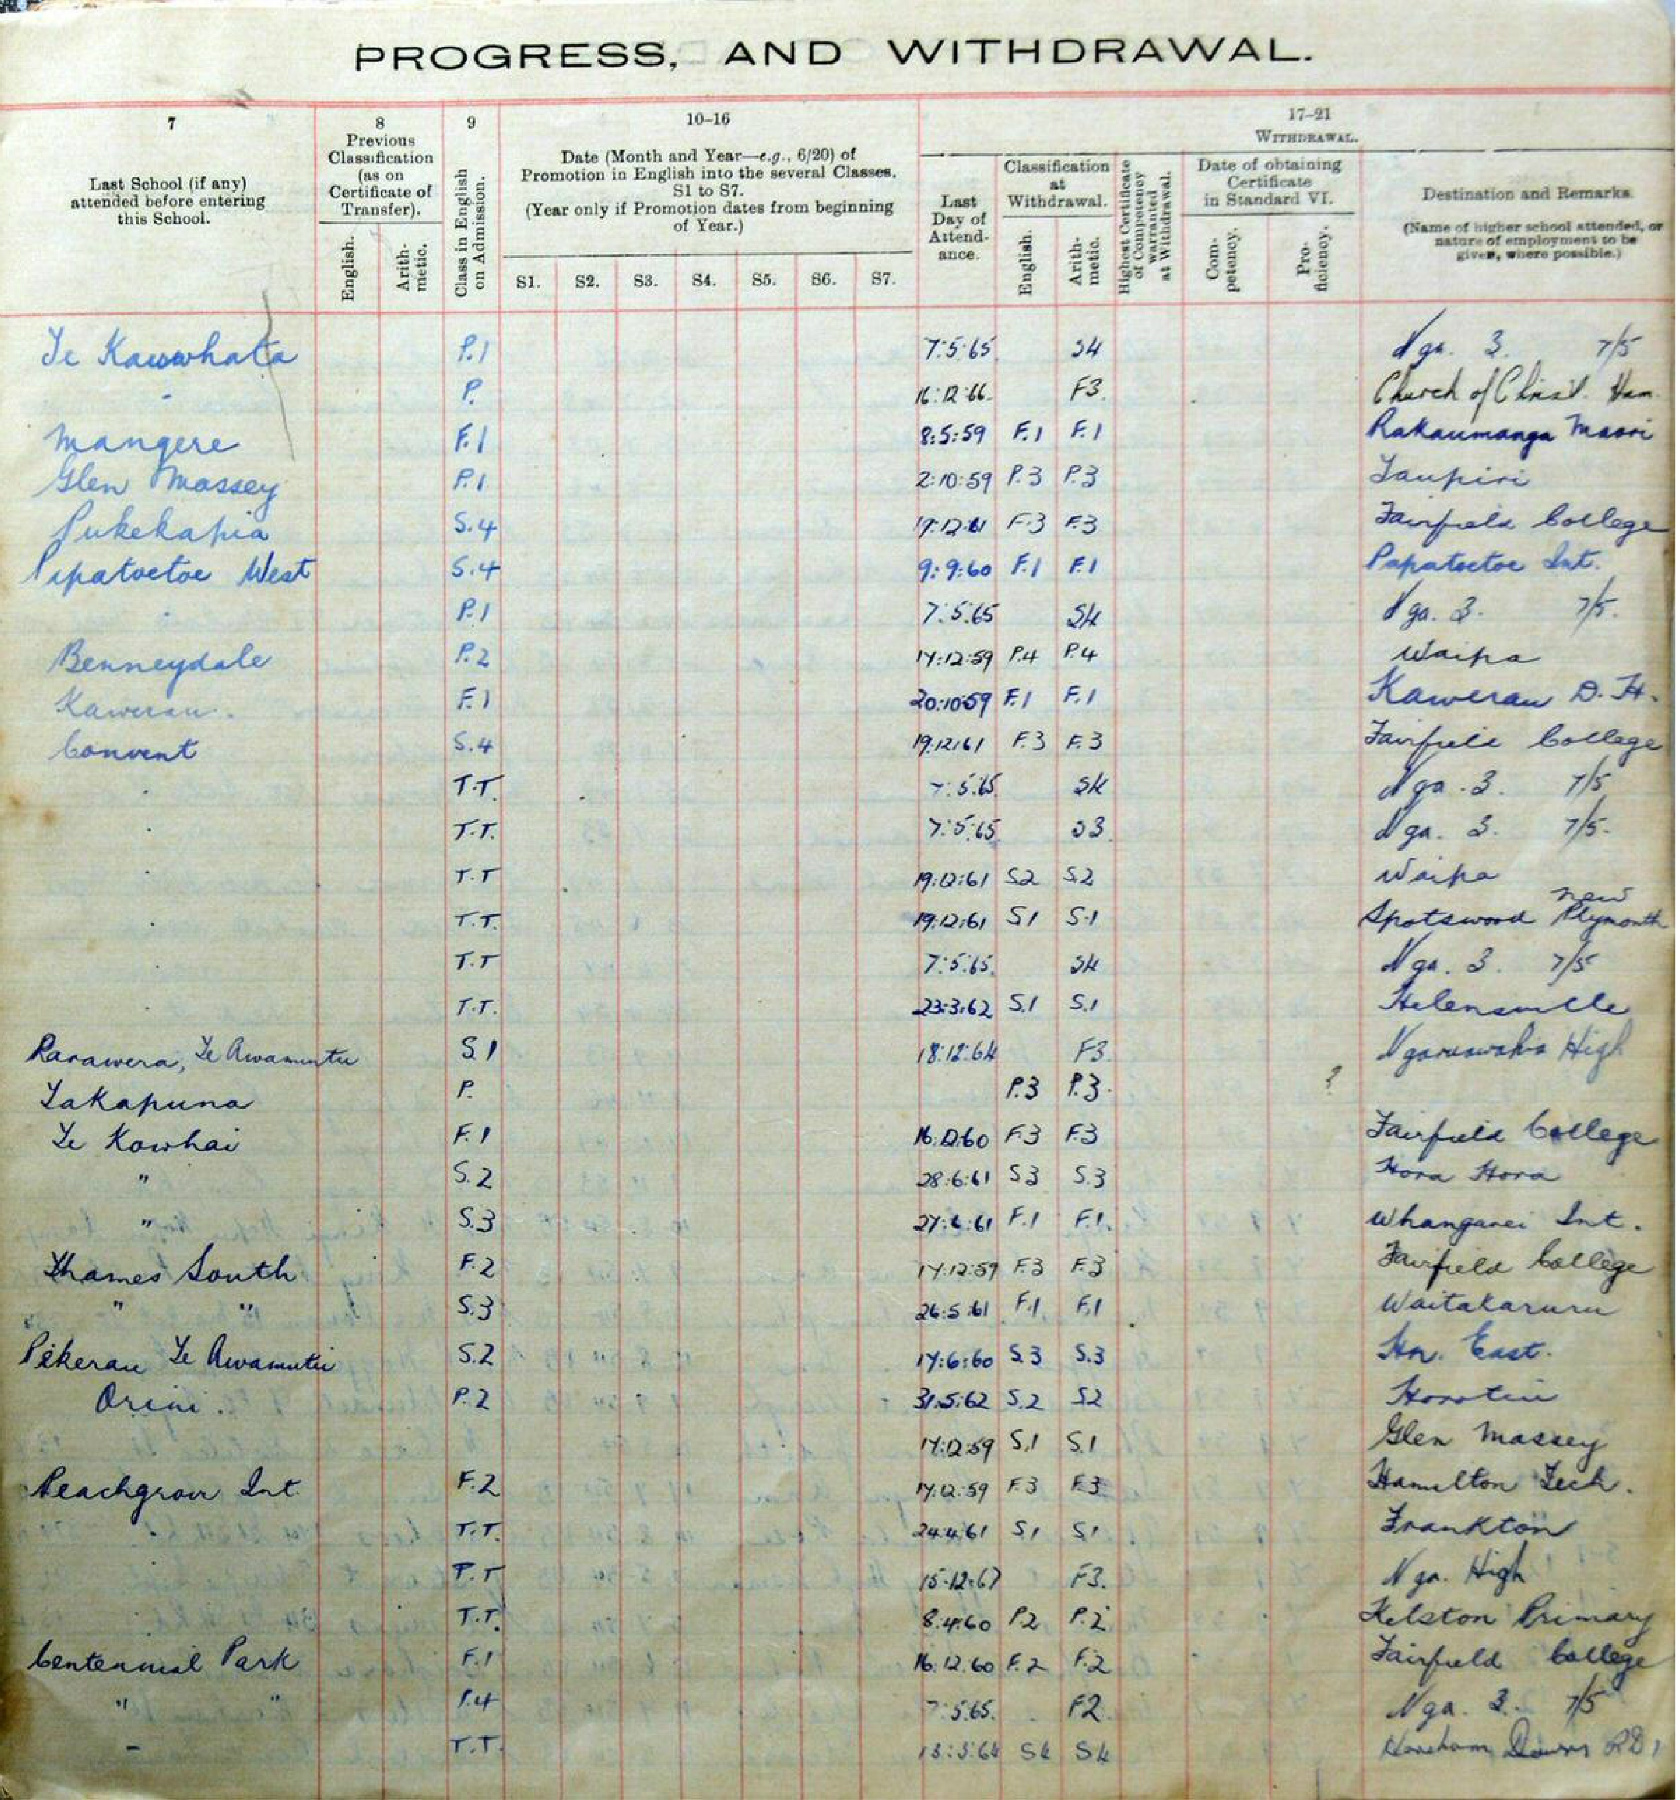 PROGRESS, AND WITHDRAWAL.
7
Last School (if any) attended before entering this School.
8
Previous Classification (as on Certificate of Transfer).
English.
Arithmetic.
9
Class in English on Admission.
10-16
Date (Month and Year—e.g., 6/20) of Promotion in English into the several Classes, S1 to S7.
(Year only if Promotion dates from beginning of Year.)
S1. S2. S3. S4. S5. S6. S7.
17-21
WITHDRAWAL.
Last Day of Attendance.
Classification at Withdrawal.
English.
Arithmetic.
Highest Certificate of Competency warranted at Withdrawal.
Date of obtaining Certificate in Standard VI.
Competency.
Proficiency.
Destination and Remarks
(Name of higher school attended, or nature of employment to be given, where possible.)
Te Kauwhata P.1 7:5:65 S4 Nga. 3. 7/5
P. 16:12:66 F3. Church of Christ. Ham.
Mangere F.1 8:5:59 F.1 F.1 Rakaumanga Maori
Glen Massey P.1 2:10:59 P.3 P.3 Taupiri
Pukekapia S.4 19:12:61 F.3 F.3 Fairfield College
Papatoetoe West S.4 9:9:60 F.1 F.1 Papatoetoe Int.
P.1 7:5:65 S4 Nga. 3. 7/5.
Benneydale P.2 17:12:59 P.4 P.4 Waipa
Kawerau. F.1 20:10:59 F.1 F.1 Kawerau D.H.
Convent S.4 19:12:61 F.3 F.3 Fairfield College
T.T. 7:5:65 S4 Nga. 3. 7/5
T.T. 7:5:65 S3. Nga. 3. 7/5.
T.T 19:12:61 S2 S2 Waipa
T.T. 19:12:61 S1 S.1 Spotswood New Plymouth
T.T 7:5:65. S4 Nga. 3. 7/5
T.T. 23:3:62 S.1 S.1 Helensville
Parawera, Te Awamutu S.1 18:12:64 F3. Ngaruawahia High
Takapuna P. P.3 P.3. ?
Te Kowhai F.1 16:12:60 F.3 F.3 Fairfield College
" S.2 28:6:61 S3 S.3 Hora Hora
" S.3 27:6:61 F.1 F.1. Whangarei Int.
Thames South F.2 17:12:59 F.3 F.3 Fairfield College
" " S.3 26:5:61 F.1 F.1 Waitakaruru
Pekerau Te Awamutu S.2 17:6:60 S.3 S.3 Hn. East.
Orini. P.2 31:5:62 S.2 S2 Horotiu
17:12:59 S.1 S.1 Glen Massey
Peachgrove Int. F.2 17:12:59 F.3 F.3 Hamilton Tech.
T.T. 24:4:61 S1 S1 Frankton
P.T 15:12:67 F3. Nga. High
T.T. 8:4:60 P.2 P.2 Kelston Primary
Centennial Park F.1 16.12.60 F.2 F.2 Fairfield College
" " P.4 7:5:65. F2. Nga. 3. 7/5
- T.T. S4 S4 Horsham Downs RD1